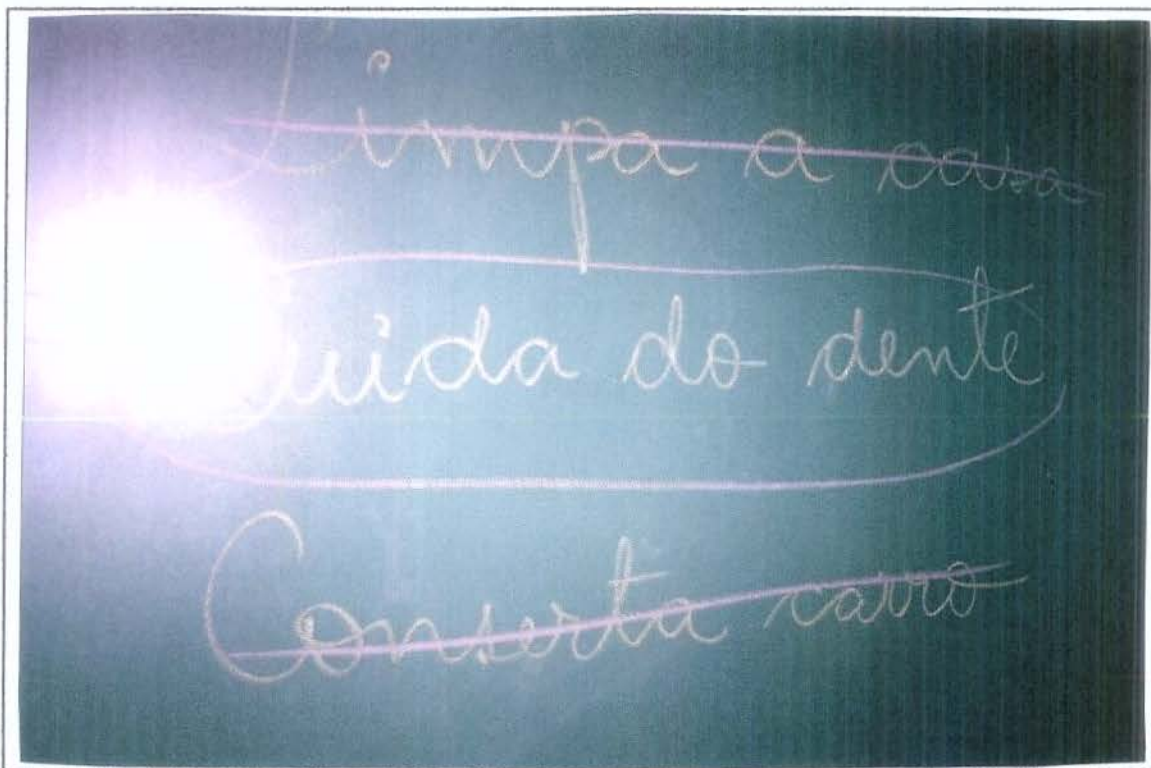 Limpa a casa
Cuida do dente
Conserta carro